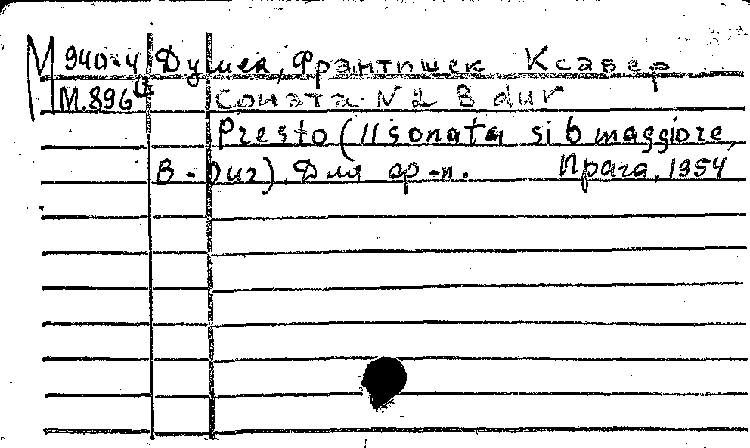 М 940-4 Душек, Франтишек Ксавер
М.896 Соната N 2 B dur
Presto (II sonata si b maggiore,
B-Dur). Для ф-п. Прага, 1954